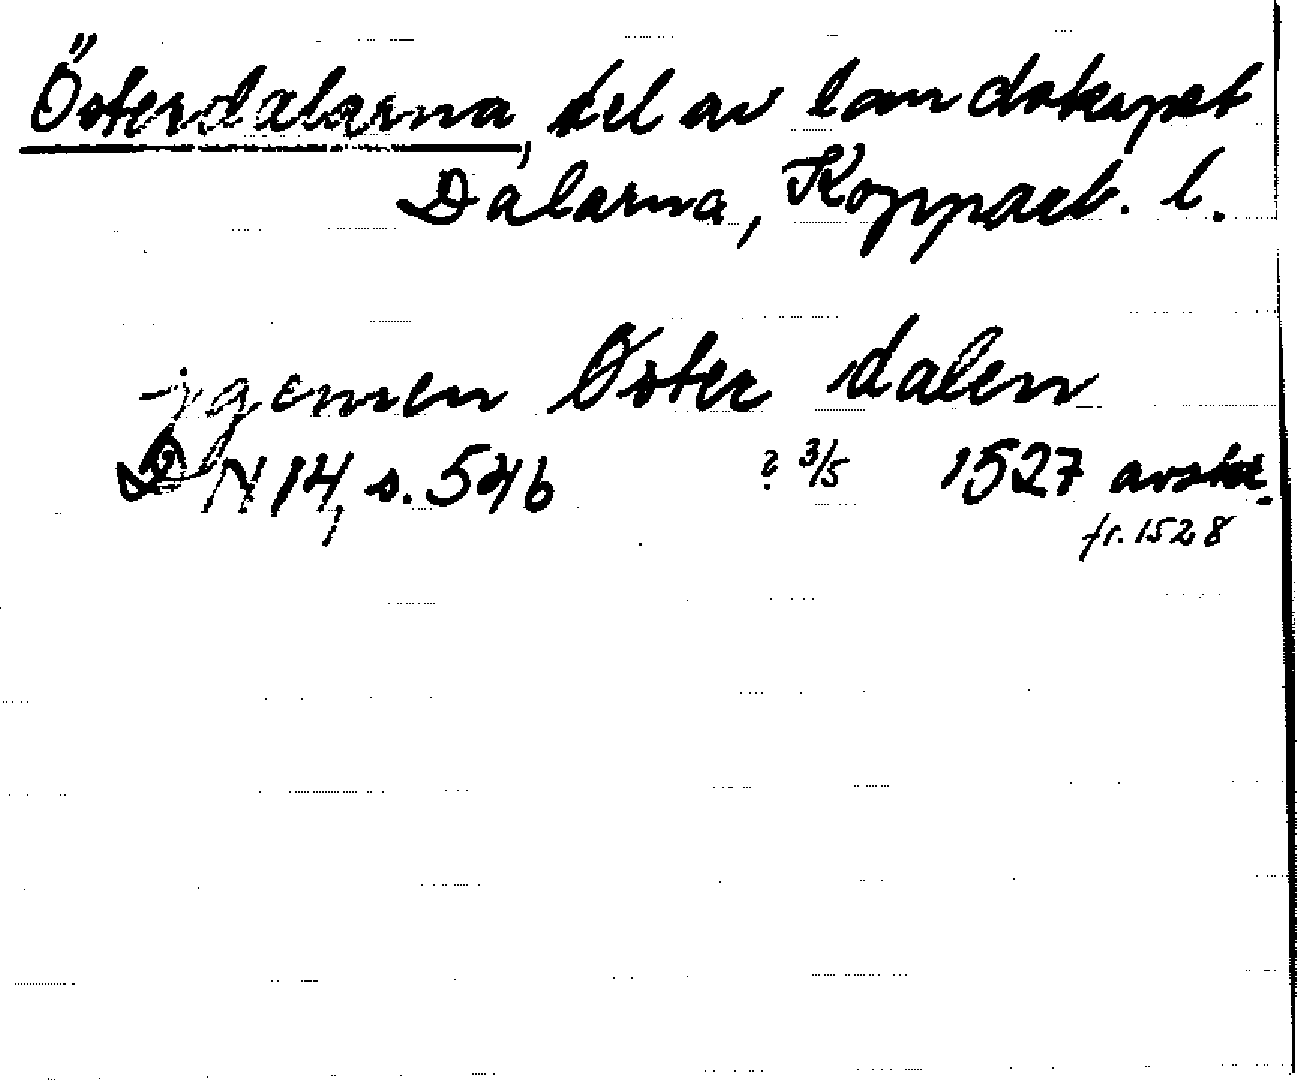 Österdalarna, del av landskapet
Dalarna, Kopparb. l.
igemen Øster dalen
DN 14, s. 546 ? 3/5 1527 avskr.
fr. 1528